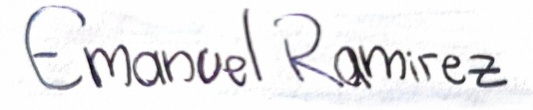 Emanuel Ramirez